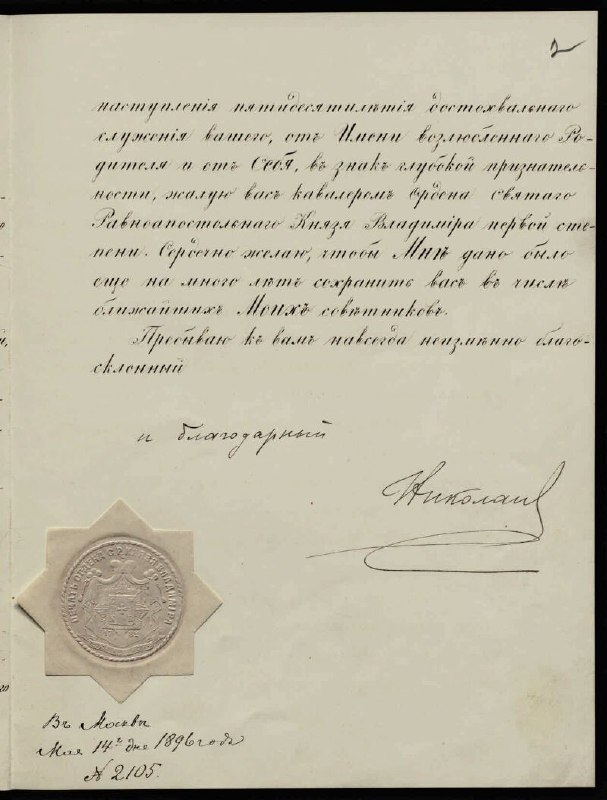 2
наступленія пятидесятилѣтія достохвальнаго
служенія вашего, отъ Имени возлюбленнаго Ро-
дителя и отъ Себя, въ знакъ глубокой признатель-
ности, жалую васъ кавалеромъ Ордена святаго
Равноапостольнаго Князя Владиміра первой сте-
пени. Сердечно желаю, чтобы Мнѣ дано было
еще на много лѣтъ сохранить васъ въ числѣ
ближайшихъ Моихъ совѣтниковъ.
Пребываю къ вамъ навсегда неизмѣнно благо-
склонный
и благодарный
Николай
ПЕЧАТЬ ОРДЕНА СВ. РАВ. КН. ВЛАДИМІРА
Въ Москвѣ
Мая 14го дня 1896 года
№ 2105.